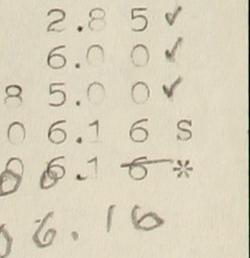 2.8 5 ✓
6.0 0 ✓
8 5.0 0 ✓
0 6.1 6 S
0 6.1 6 *
0 6.16